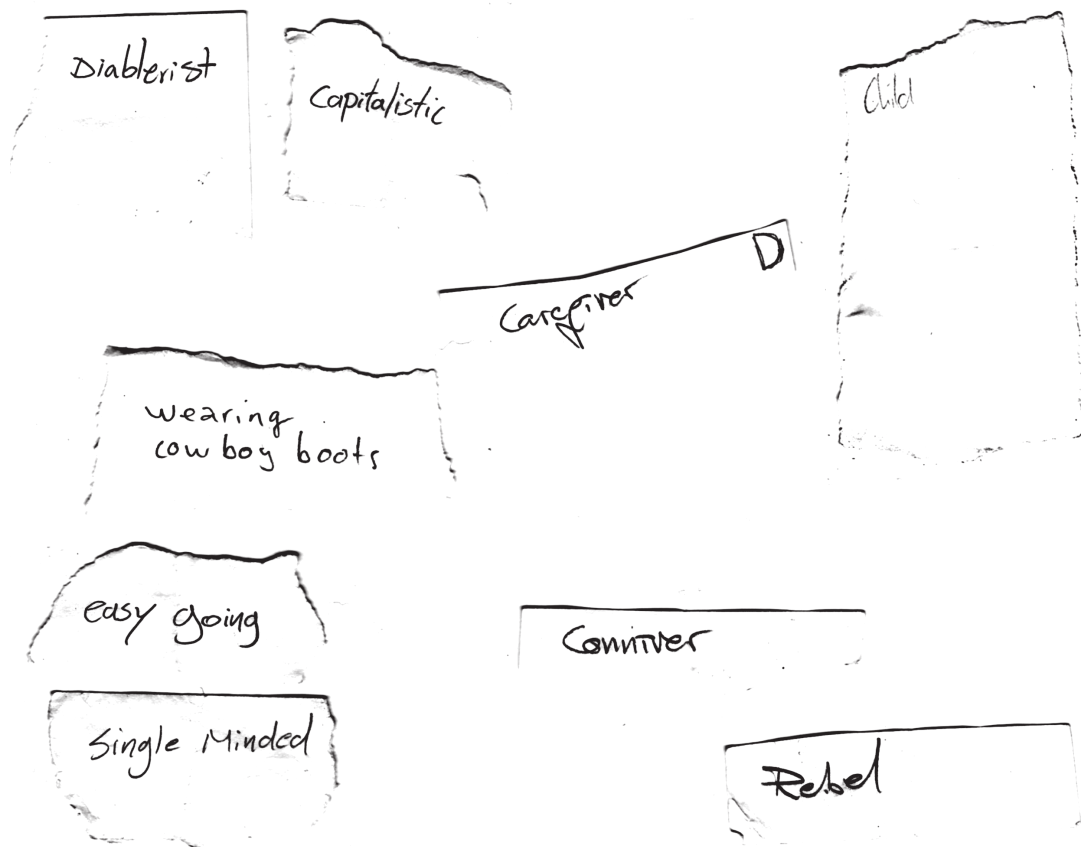 Diablerist
Capitalistic
Child
D
Caregiver
wearing
cowboy boots
easy going
Conniver
Single Minded
Rebel